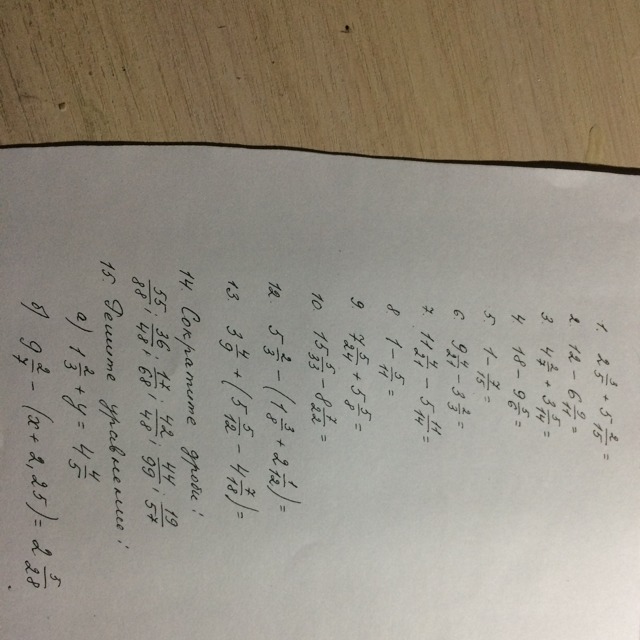 1. 2 3/5 + 5 2/15 =
2 12 - 6 2/11 =
3 4 2/7 + 3 5/11 =
4 10 - 9 5/6 =
5 1 - 7/12 =
6 9 4/27 - 3 2/3 =
7 11 4/21 - 5 11/14 =
8 1 - 5/11 =
9 7 5/24 + 5 5/8 =
10 15 5/33 - 8 7/22 =
12 5 2/3 - (1 3/8 + 2 1/12) =
13 3 4/9 + (5 5/12 - 4 7/18) =
14 Сократите дроби:
55/88; 36/48; 17/68; 42/48; 44/99; 19/57
15. Решите уравнения:
а) 1 2/3 + y = 4 4/5
б) 9 2/7 - (x + 2,25) = 2 5/28